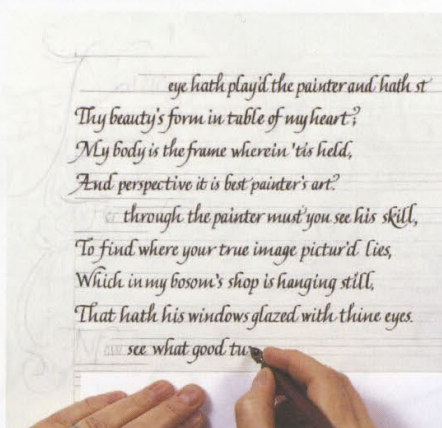 eye hath play'd the painter and hath st
Thy beauty's form in table of my heart?
My body is the frame wherein 'tis held,
And perspective it is best painter's art?
through the painter must you see his skill,
To find where your true image pictur'd lies,
Which in my bosom's shop is hanging still,
That hath his windows glazed with thine eyes.
see what good tu